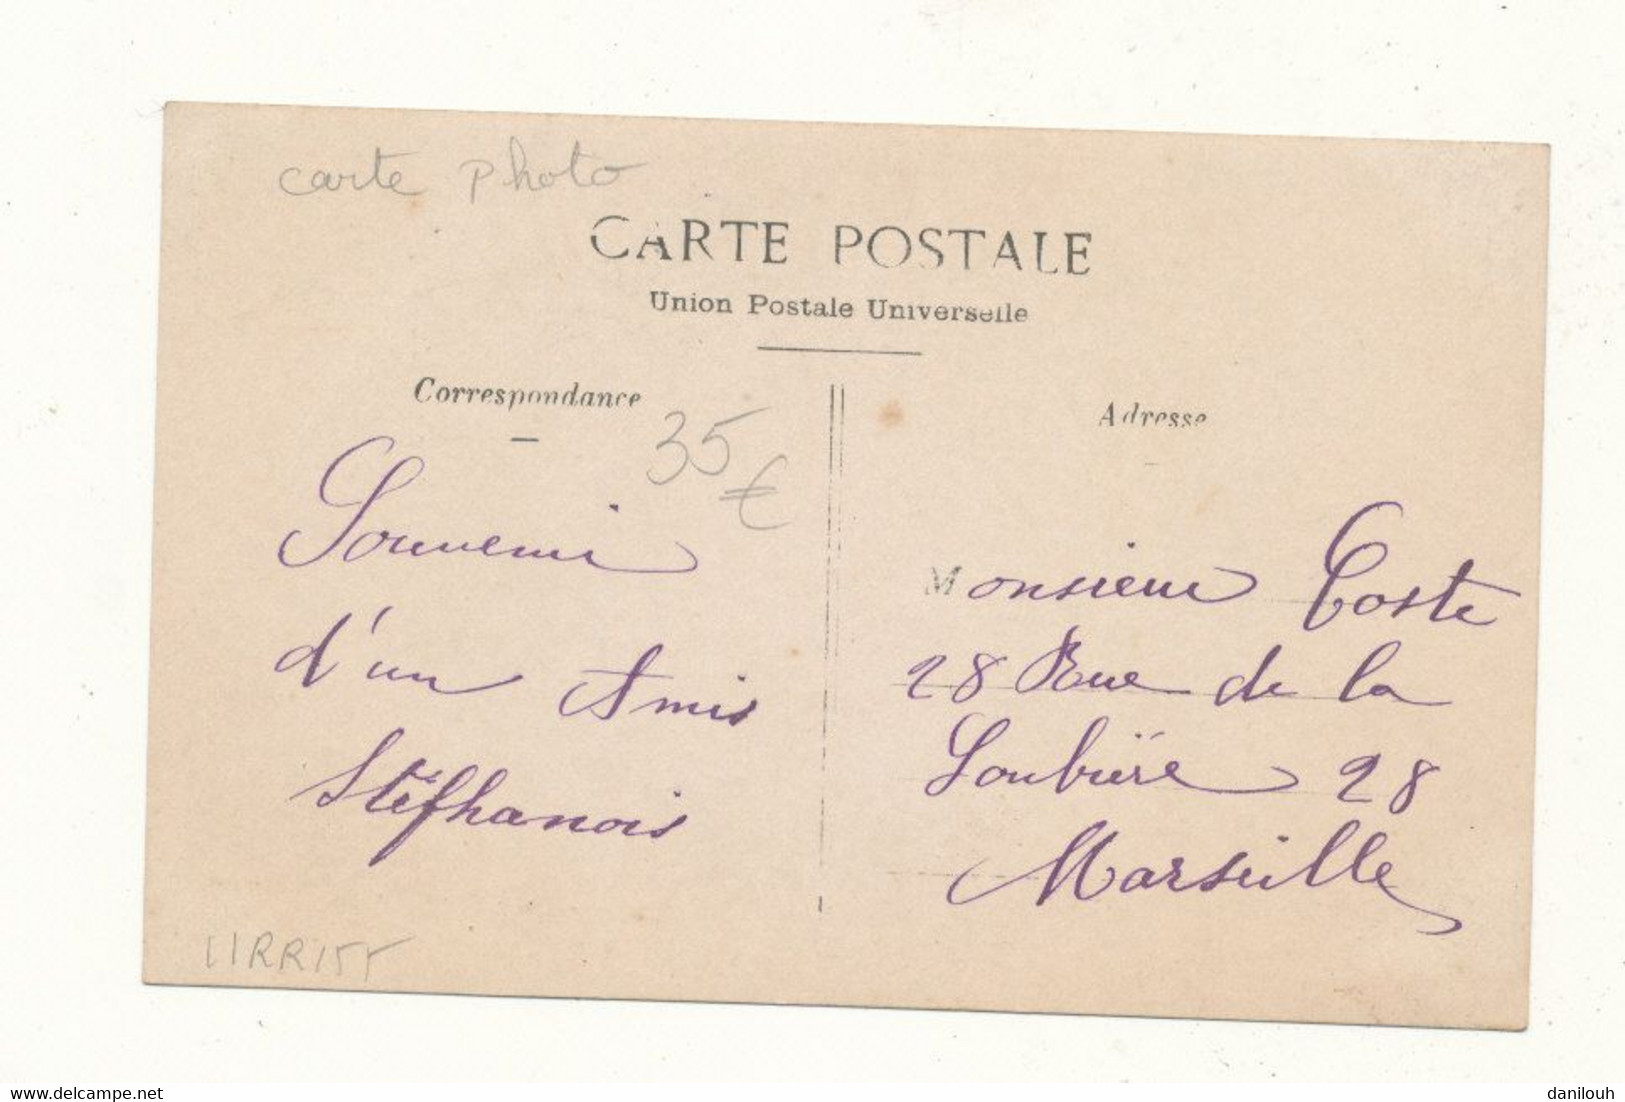 carte photo
CARTE POSTALE
Union Postale Universelle
Correspondance
35 €
Souvenir
d'un Amis
Stéphanois
11RR155
Adresse
Monsieur Coste
28 Rue de la
Loubière 28
Marseille
delcampe.net
danilouh